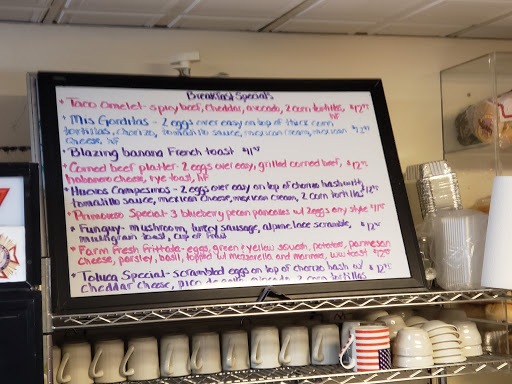 Breakfast Specials
* Taco Omelet - spicy beef, cheddar, avocado, 2 corn tortillas, $12
HF
* Mis Gorditas - 2 eggs over easy on top of thick corn
tortillas, chorizo, tomatillo sauce, mexican cream, mexican $12
cheese, HF
* Blazing banana French toast $11
* Corned beef platter - 2 eggs over easy, grilled corned beef, $12
habanero cheese, rye toast, HF
* Huevos Campesinos - 2 eggs over easy on top of chorizo hash with
tomatillo sauce, mexican cheese, mexican cream, 2 corn tortillas $12
* Primavera Special - 3 blueberry pecan pancakes w/ 2 eggs any style $11
* Funguy - mushroom, turkey sausage, alpine lace scramble, $12
multigrain toast, cup of fruit
* Farm Fresh Frittata - eggs, green & yellow squash, potatoes, parmesan
cheese, parsley, basil, topped w/ mozzarella and marinara, ww toast $12
* Toluca Special - scrambled eggs on top of chorizo hash w/ $12
cheddar cheese, pico de gallo, avocado, 2 corn tortillas